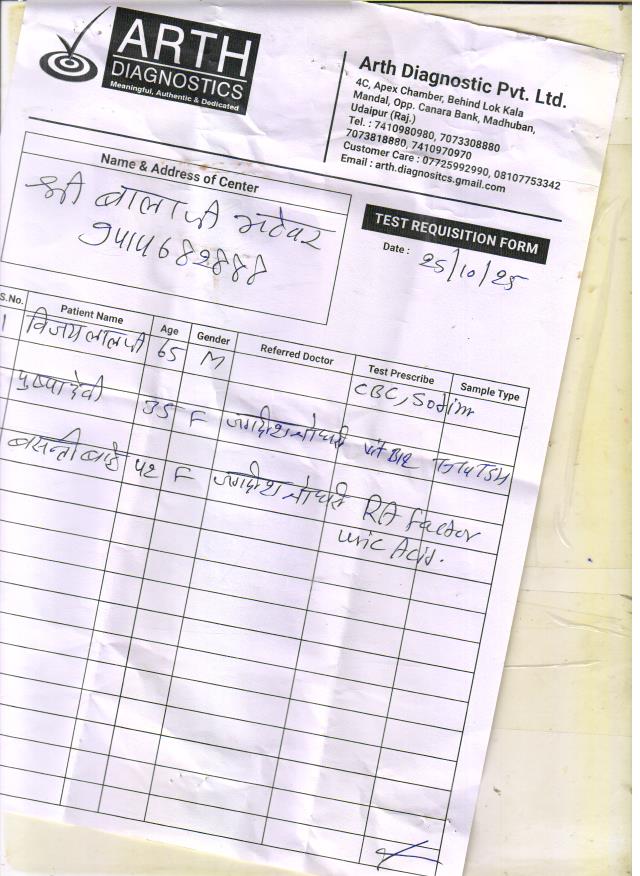 ARTH
DIAGNOSTICS
Meaningful, Authentic & Dedicated
Arth Diagnostic Pvt. Ltd.
4C, Apex Chamber, Behind Lok Kala
Mandal, Opp. Canara Bank, Madhuban,
Udaipur (Raj.)
Tel. : 7410980980, 7073308880
7073818880, 7410970970
Customer Care : 07725992990, 08107753342
Email : arth.diagnositcs.gmail.com
Name & Address of Center
श्री बालाजी
9414682888
TEST REQUISITION FORM
Date : 25/10/25
S.No. Patient Name Age Gender Referred Doctor Test Prescribe Sample Type
1 विजयलालजी 65 M CBC, Sodim
पुष्पादेवी 35 F B12 TSH
42 F RA factor
uric Acid.